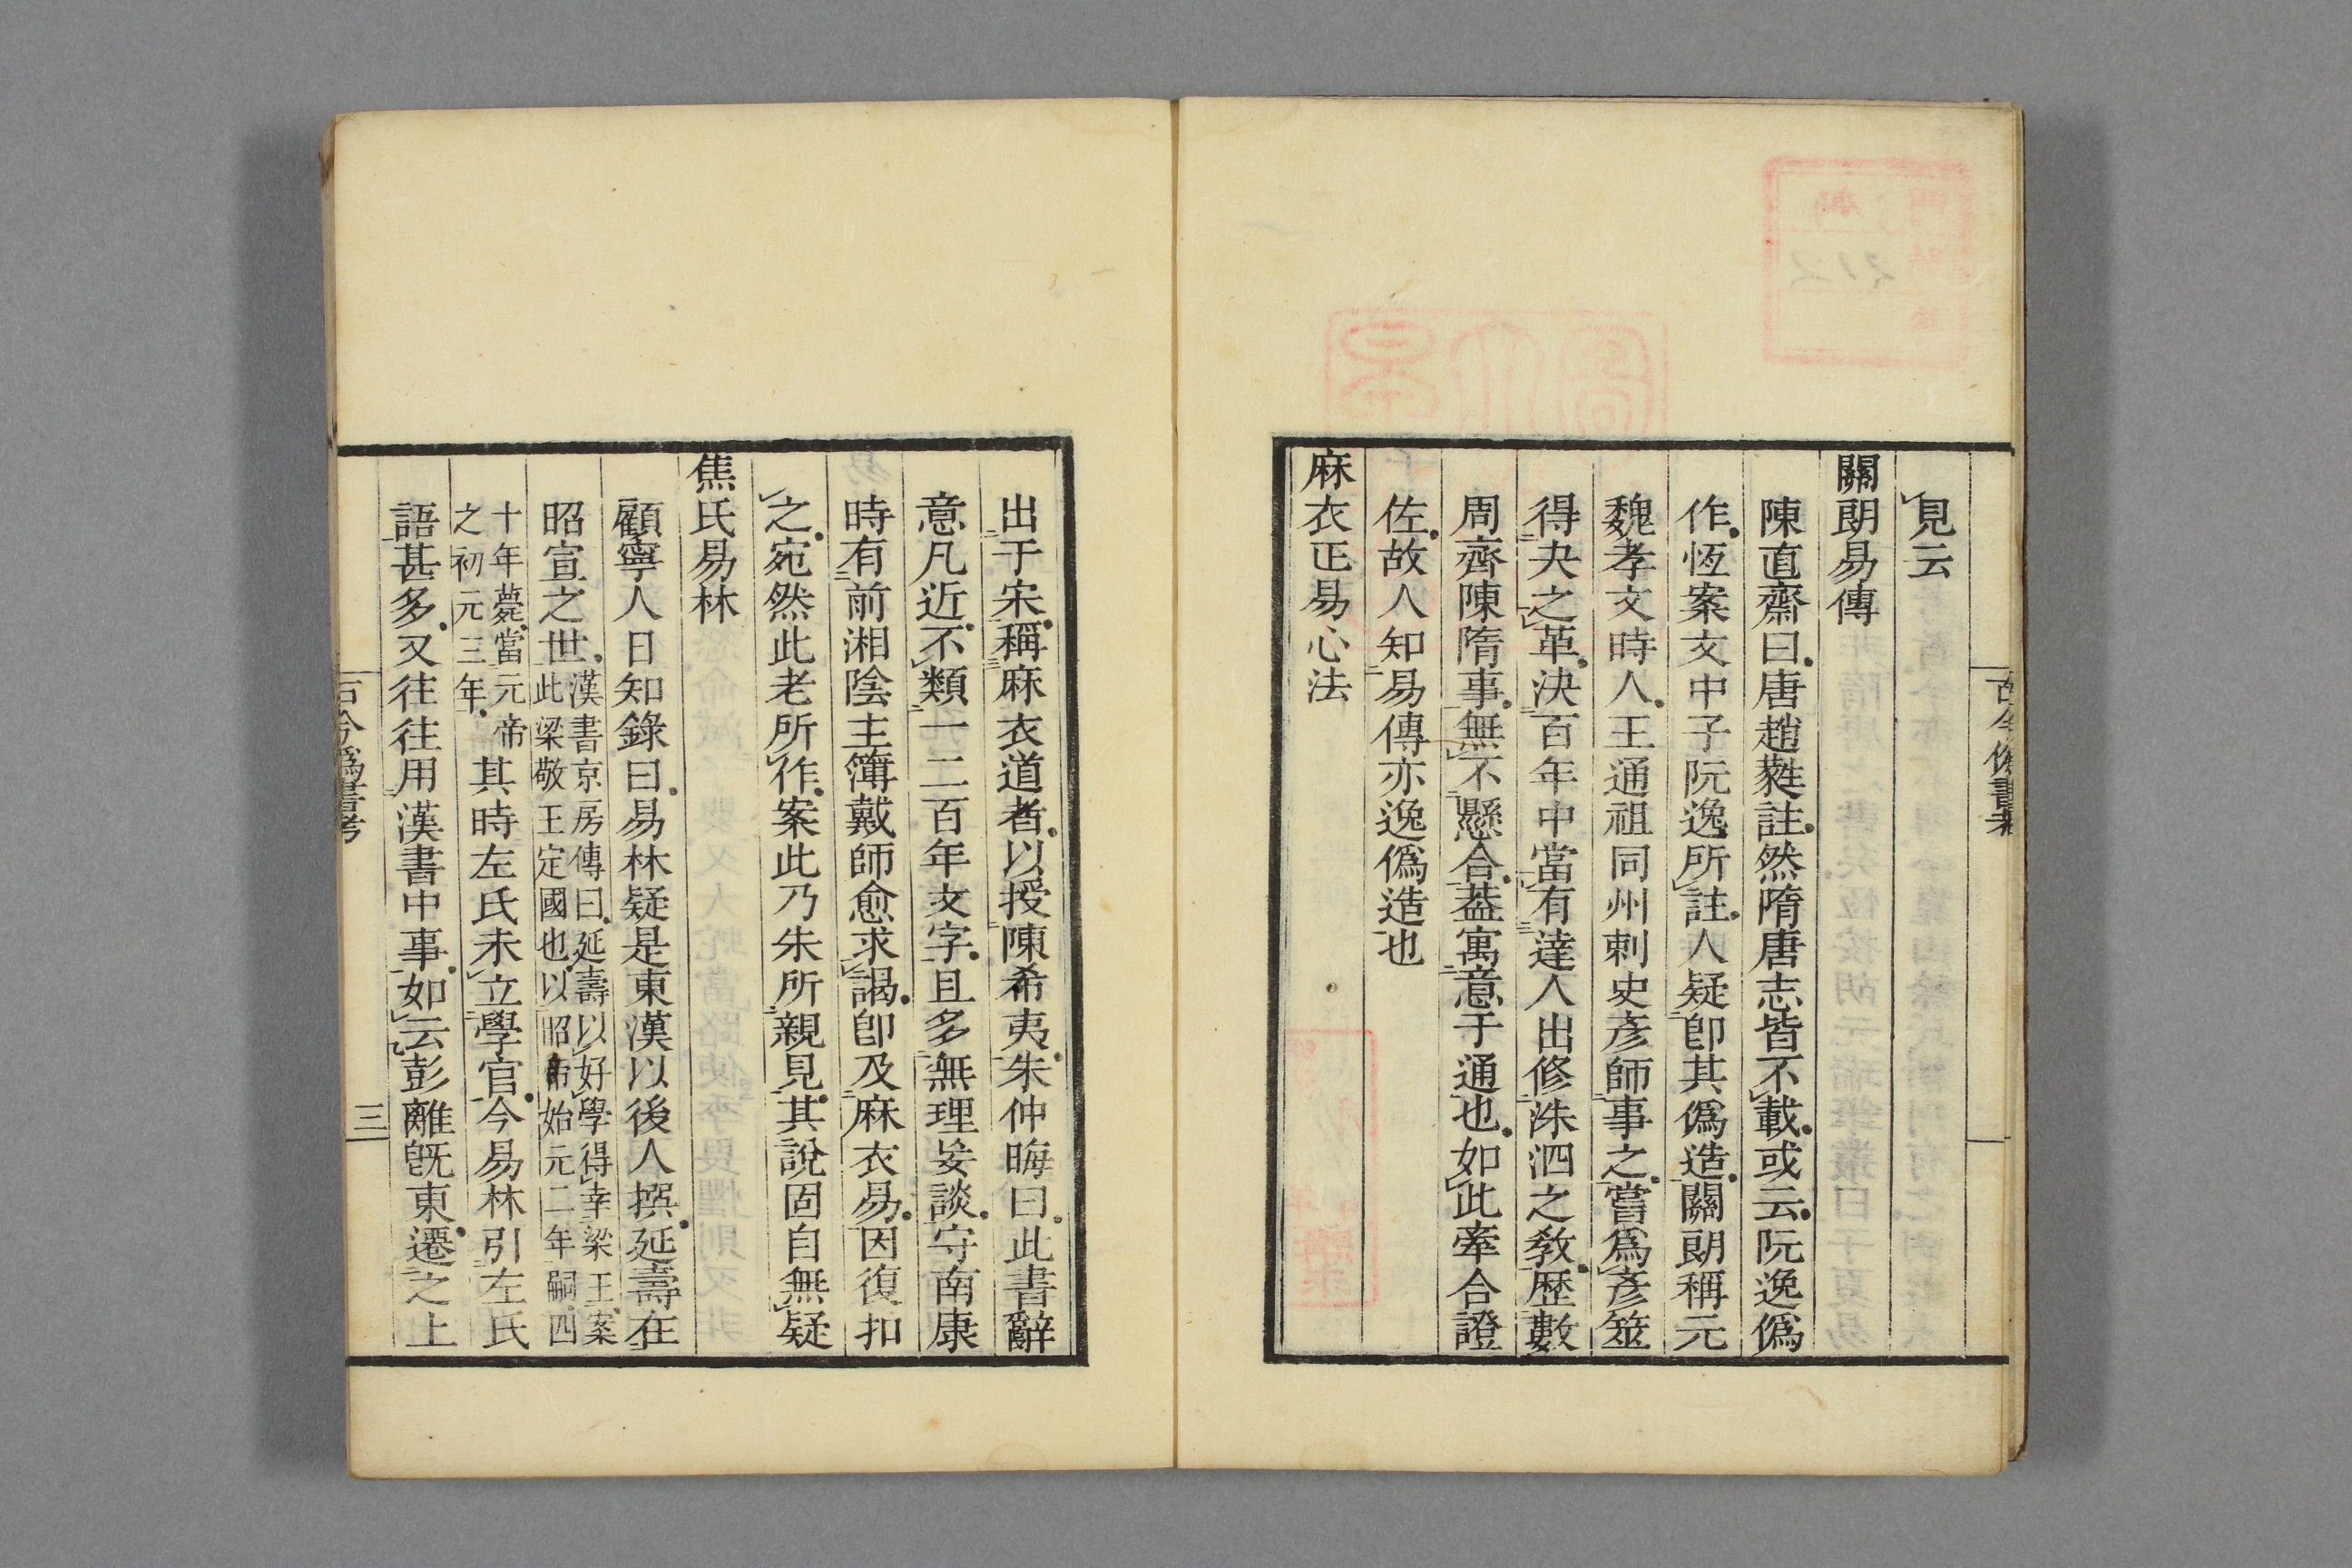 見云
關朗易傳
陳直齋曰唐趙蕤註然隋唐志皆不載或云阮逸僞
作恆案文中子阮逸所註人疑卽其僞造關朗稱元
魏孝文時人王通祖同州刺史彥師事之嘗爲彥筮
得夬之革決百年中當有達人出修洙泗之敎歷數
周齊陳隋事無不懸合葢寓意于通也如此牽合證
佐故人知易傳亦逸僞造也
麻衣正易心法
出于宋稱麻衣道者以授陳希夷朱仲晦曰此書辭
意凡近不類一二百年文字且多無理妄談守南康
時有前湘陰主簿戴師愈求謁卽及麻衣易因復扣
之宛然此老所作案此乃朱所親見其說固自無疑
焦氏易林
顧寧人日知錄曰易林疑是東漢以後人撰延壽在
昭宣之世漢書京房傳曰延壽以好學得幸梁王案
此梁敬王定國也以昭帝始元二年嗣四
十年薨當元帝
之初元三年其時左氏未立學官今易林引左氏
語甚多又往往用漢書中事如云彭離旣東遷之上
古今僞書考
三